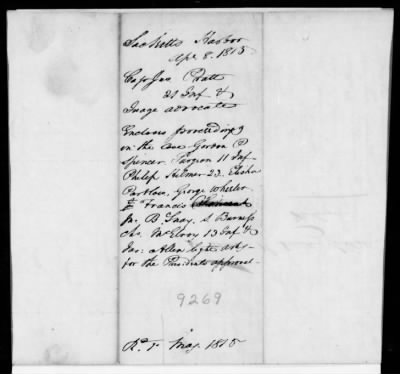 Sacketts Harbor
Apl 8. 1815
Capt Jno Pratt
21 Inf &
Judge advocate
Encloses proceedings
in the case Gordon P
Spencer Surgeon 11 Inf
Philip Helmer 23. Elisha
Partlow, George Wheeler
Francis
Jn. B. Tray, S Burness
Chs. McElroy 13 Inf &
Jas: Allen light arty-
for the Presidents approval-
9269
Rd May. 1815